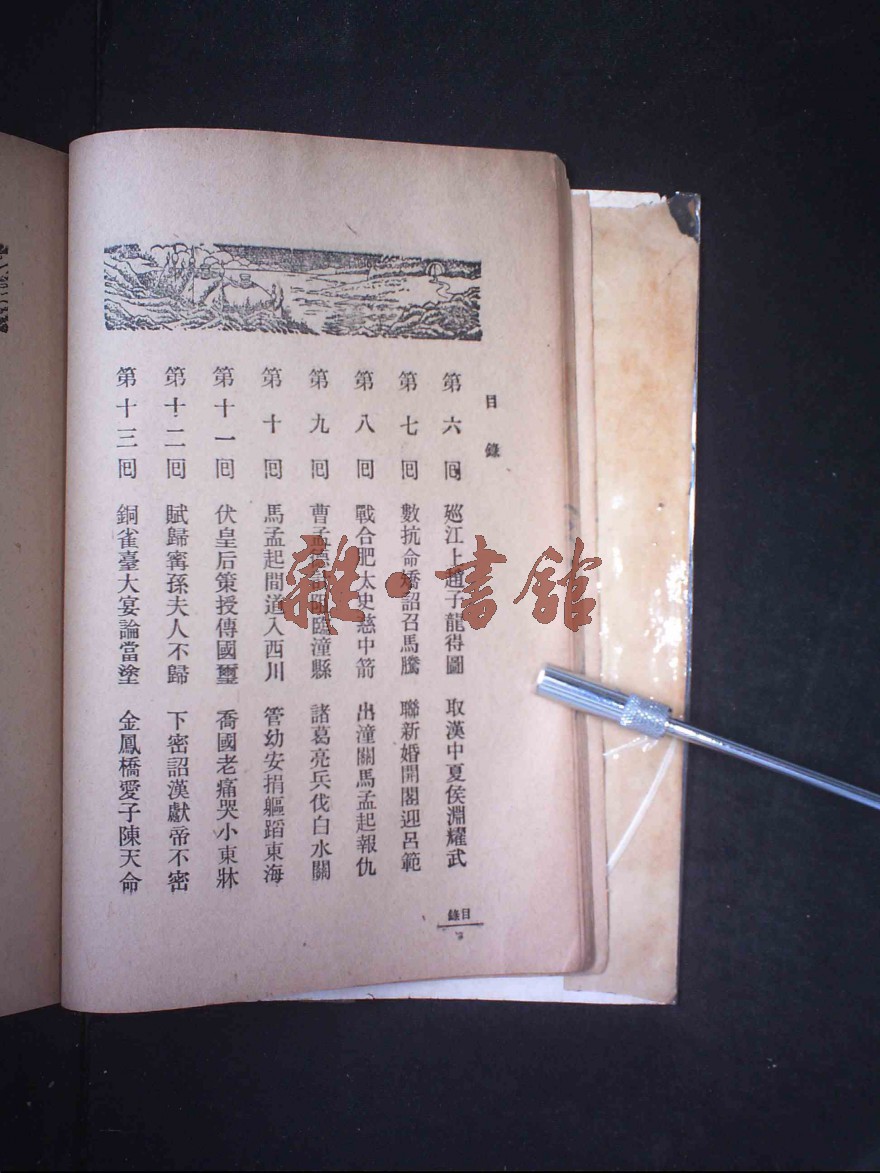 目錄
第六囘 廵江上趙子龍得圖 取漢中夏侯淵耀武
第七囘 數抗命矯詔召馬騰 聯新婚開閣迎呂範
第八囘 戰合肥太史慈中箭 出潼關馬孟起報仇
第九囘 曹孟德臨潼縣 諸葛亮兵伐白水關
第十囘 馬孟起間道入西川 管幼安捐軀蹈東海
第十一囘 伏皇后策授傳國璽 喬國老痛哭小東牀
第十二囘 賦歸寗孫夫人不歸 下密詔漢獻帝不密
第十三囘 銅雀臺大宴論當塗 金鳳橋愛子陳天命
目錄
雜·書館